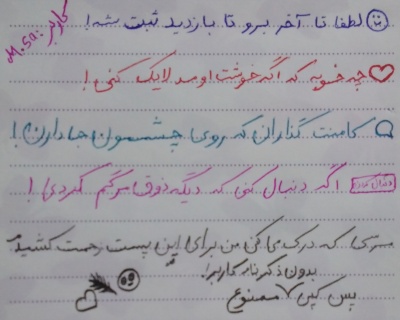 لطفا تا آخر برو تا بازدید ثبت بشه!
کاربر: M.sa
چه خوبه که اگه خوشت اومد لایک کنی!
کامنت گذاران که روی چشممون جا دارن!
اگه دنبال کنی که دیگه ذوق مرگم کردی!
مرسی که درک می کنی من برای این پست زحمت کشیدم
بدون ذکر نام کاربر!
پس کپی ممنوع